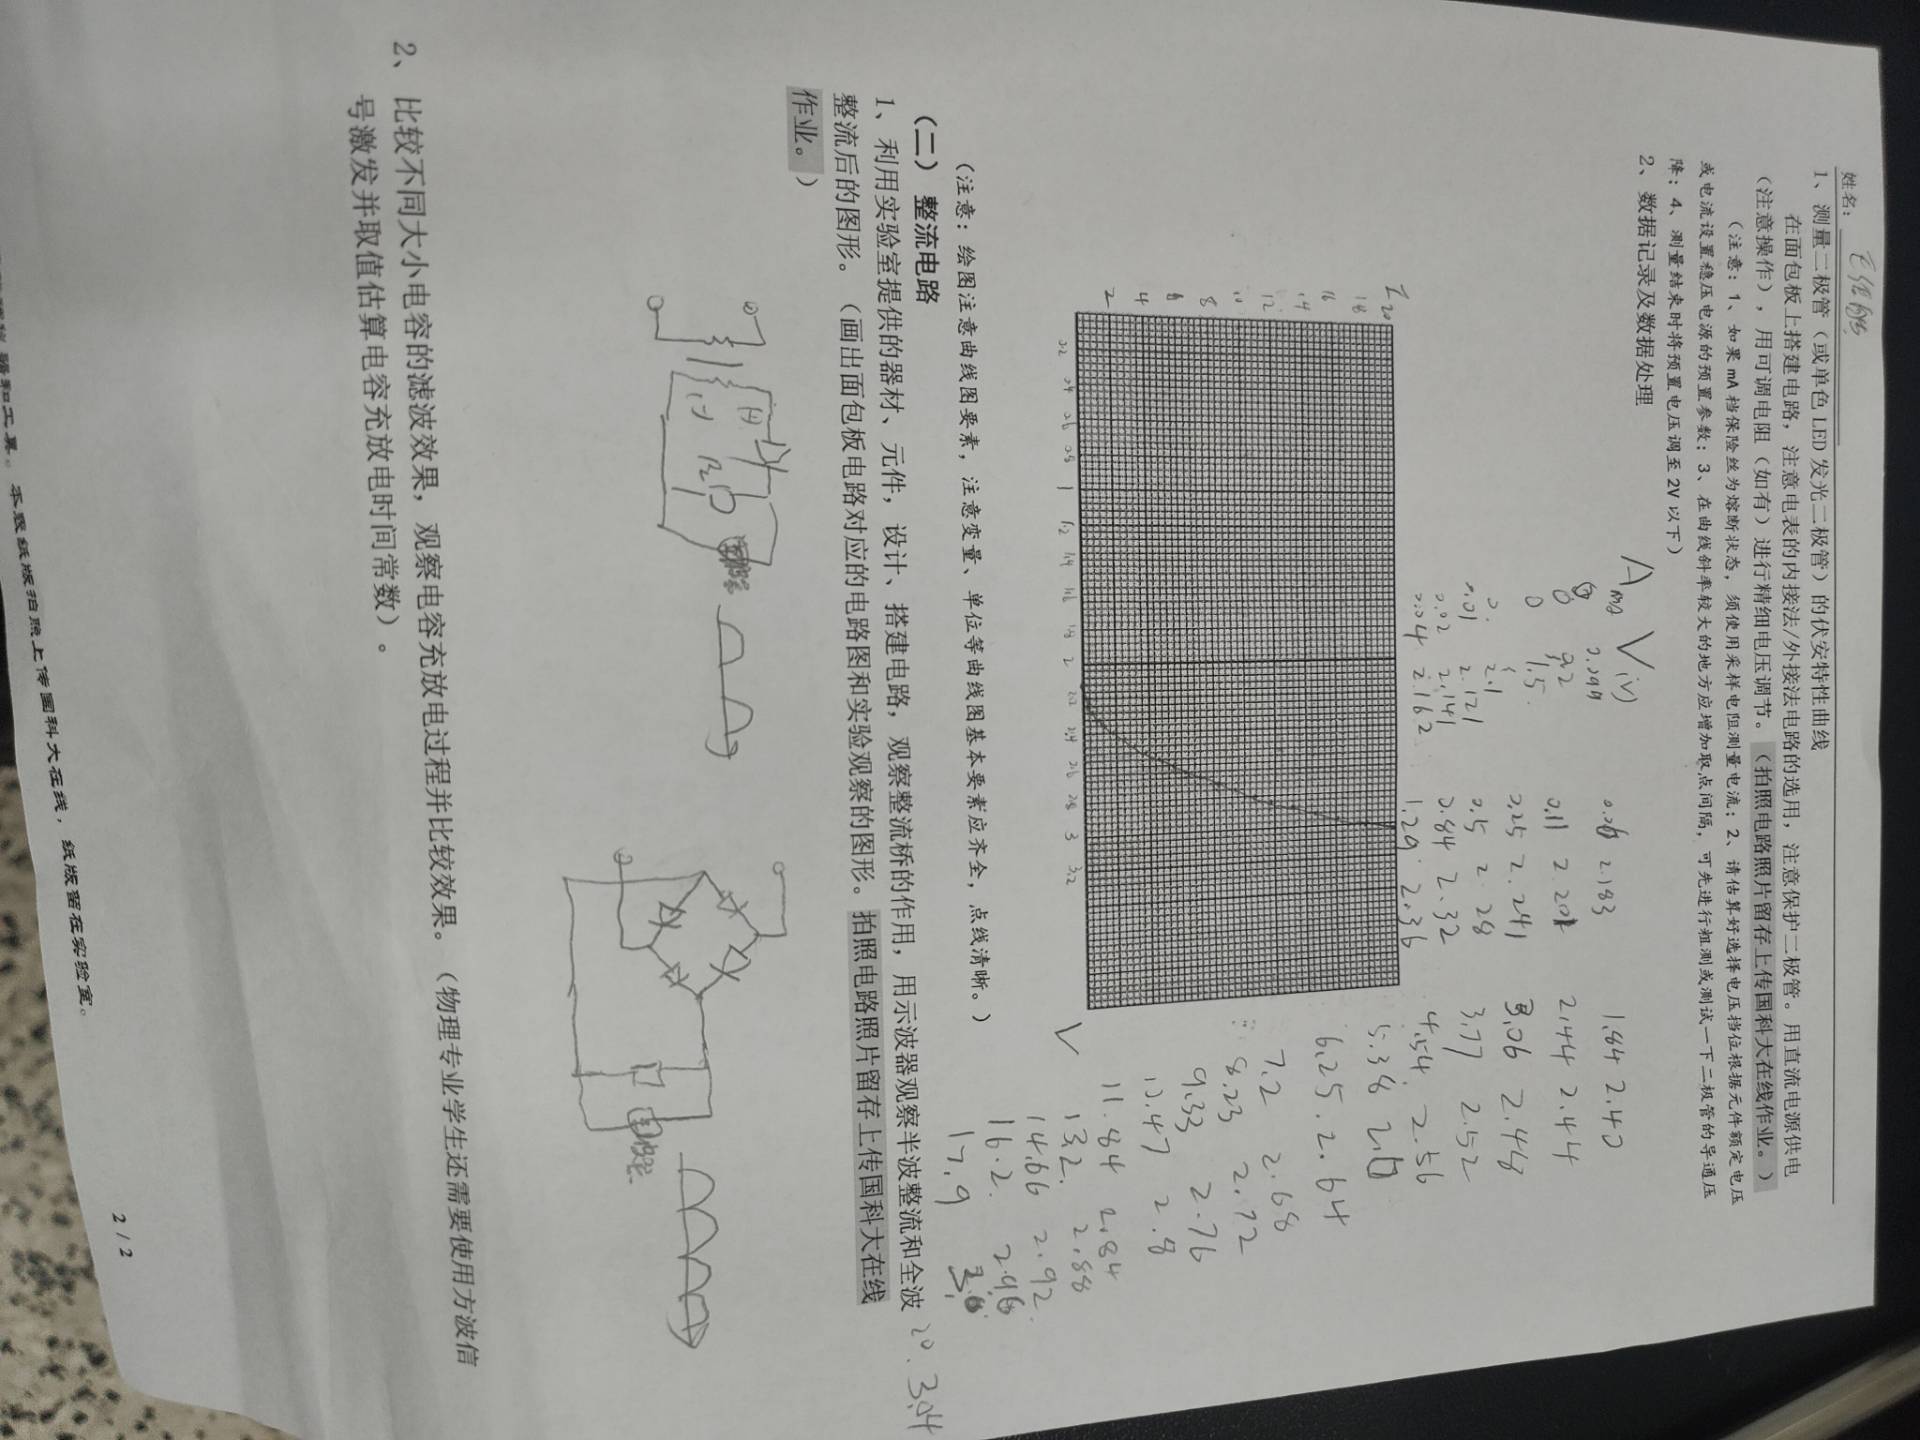 姓名：
1、测量二极管（或单色 LED 发光二极管）的伏安特性曲线
在面包板上搭建电路，注意电表的内接法/外接法电路的选用，注意保护二极管。用直流电源供电
（注意操作），用可调电阻（如有）进行精细电压调节。（拍照电路照片留存上传国科大在线作业。）
（注意：1、如果 mA 档保险丝为熔断状态，须使用采样电阻测量电流；2、请估算好选择电压挡位根据元件额定电压
或电流设置稳压电源的预置参数；3、在曲线斜率较大的地方应增加取点间隔，可先进行粗测或测试一下二极管的导通压
降；4、测量结束时将预置电压调至 2V 以下）
2、数据记录及数据处理
A mA V (V)
0 0.099
0
0 1.5
0. 2.1
0.01 2.121
0.02 2.141
0.04 2.162
2.183
0.11 2.201
0.25 2.241
0.5 2.28
0.84 2.32
1.29 2.36
1.84 2.40
2.44 2.44
3.06 2.48
3.77 2.52
4.54 2.56
5.38
6.25 2.64
7.2 2.68
8.23 2.72
9.33 2.76
10.47 2.8
11.84 2.84
13.2 2.88
14.66 2.92
16.2 2.96
17.9 3.0
20. 3.04
I 20
18
16
14
12
10
8
6
4
2
0.2 0.4 0.6 0.8 1 1.2 1.4 1.6 1.8 2 2.2 2.4 2.6 2.8 3 3.2 V
（注意：绘图注意曲线图要素，注意变量、单位等曲线图基本要素应齐全，点线清晰。）
（二） 整流电路
1、利用实验室提供的器材、元件，设计、搭建电路，观察整流桥的作用，用示波器观察半波整流和全波
整流后的图形。（画出面包板电路对应的电路图和实验观察的图形。拍照电路照片留存上传国科大在线
作业。）
(+)
(-)
2、 比较不同大小电容的滤波效果，观察电容充放电过程并比较效果。（物理专业学生还需要使用方波信
号激发并取值估算电容充放电时间常数）。
2 / 2
和工具。本表纸版拍照上传国科大在线，纸版留在实验室。